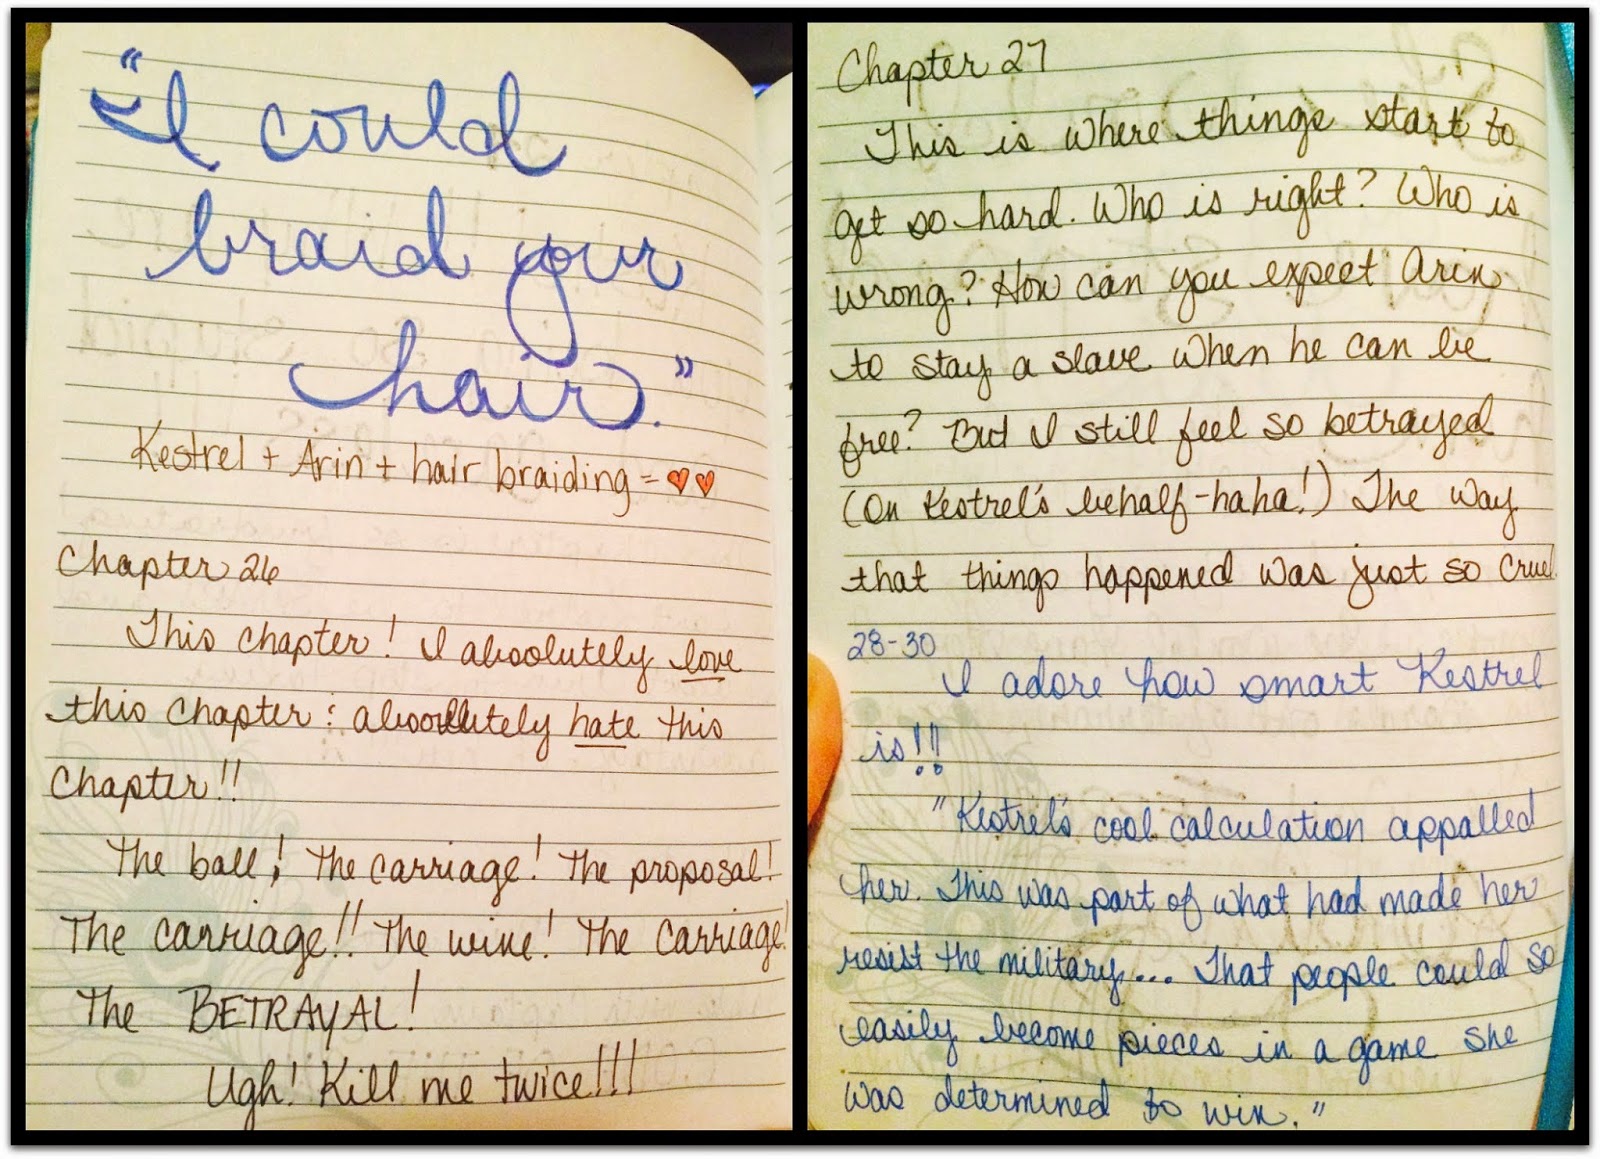 "I could
braid your
hair."
Kestrel + Arin + hair braiding = ♥♥
Chapter 26
This chapter! I absolutely love
this chapter & absolutely hate this
Chapter!!
The ball! The carriage! The proposal!
The carriage!! The wine! The carriage!
The BETRAYAL!
Ugh! Kill me twice!!!
Chapter 27
This is where things start to
get so hard. Who is right? Who is
wrong? How can you expect Arin
to stay a slave when he can be
free? But I still feel so betrayed
(On Kestrel's behalf-haha!) The way
that things happened was just so cruel
28-30
I adore how smart Kestrel
is!!
"Kestrel's cool calculation appalled
her. This was part of what had made her
resist the military... That people could so
easily become pieces in a game she
was determined to win."